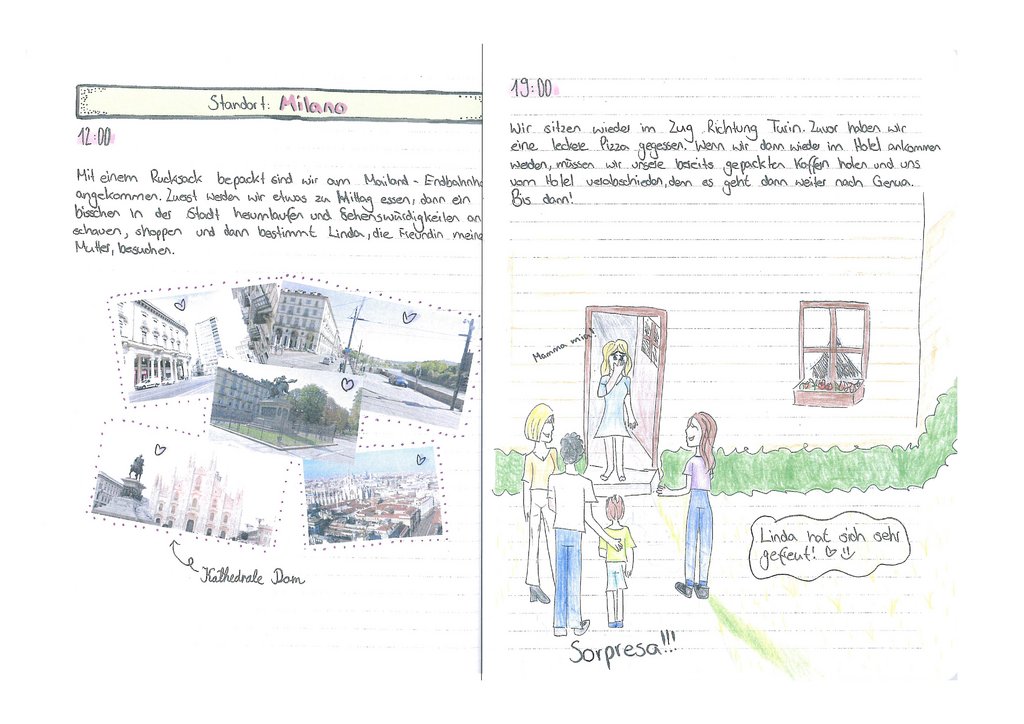 Standort: Milano
12:00
Mit einem Rucksack bepackt sind wir am Mailand-Endbahnho
angekommen. Zuerst werden wir etwas zu Mittag essen, dann ein
bisschen in der Stadt heumlaufen und Sehenswürdigkeiten an
schauen, shoppen und dann bestimmt Linda, die Freundin meine
Mutter, besuchen.
Kathedrale Dom
19:00
Wir sitzen wieder im Zug Richtung Turin. Zuvor haben wir
eine leckere Pizza gegessen. Wenn wir dann wieder im Hotel ankommen
werden, müssen wir unsere bereits gepackten Koffern holen und uns
vom Hotel verabschieden, denn es geht dann weiter nach Genua.
Bis dann!
Mamma mia!
Linda hat sich sehr
gefreut!
Sorpresa!!!